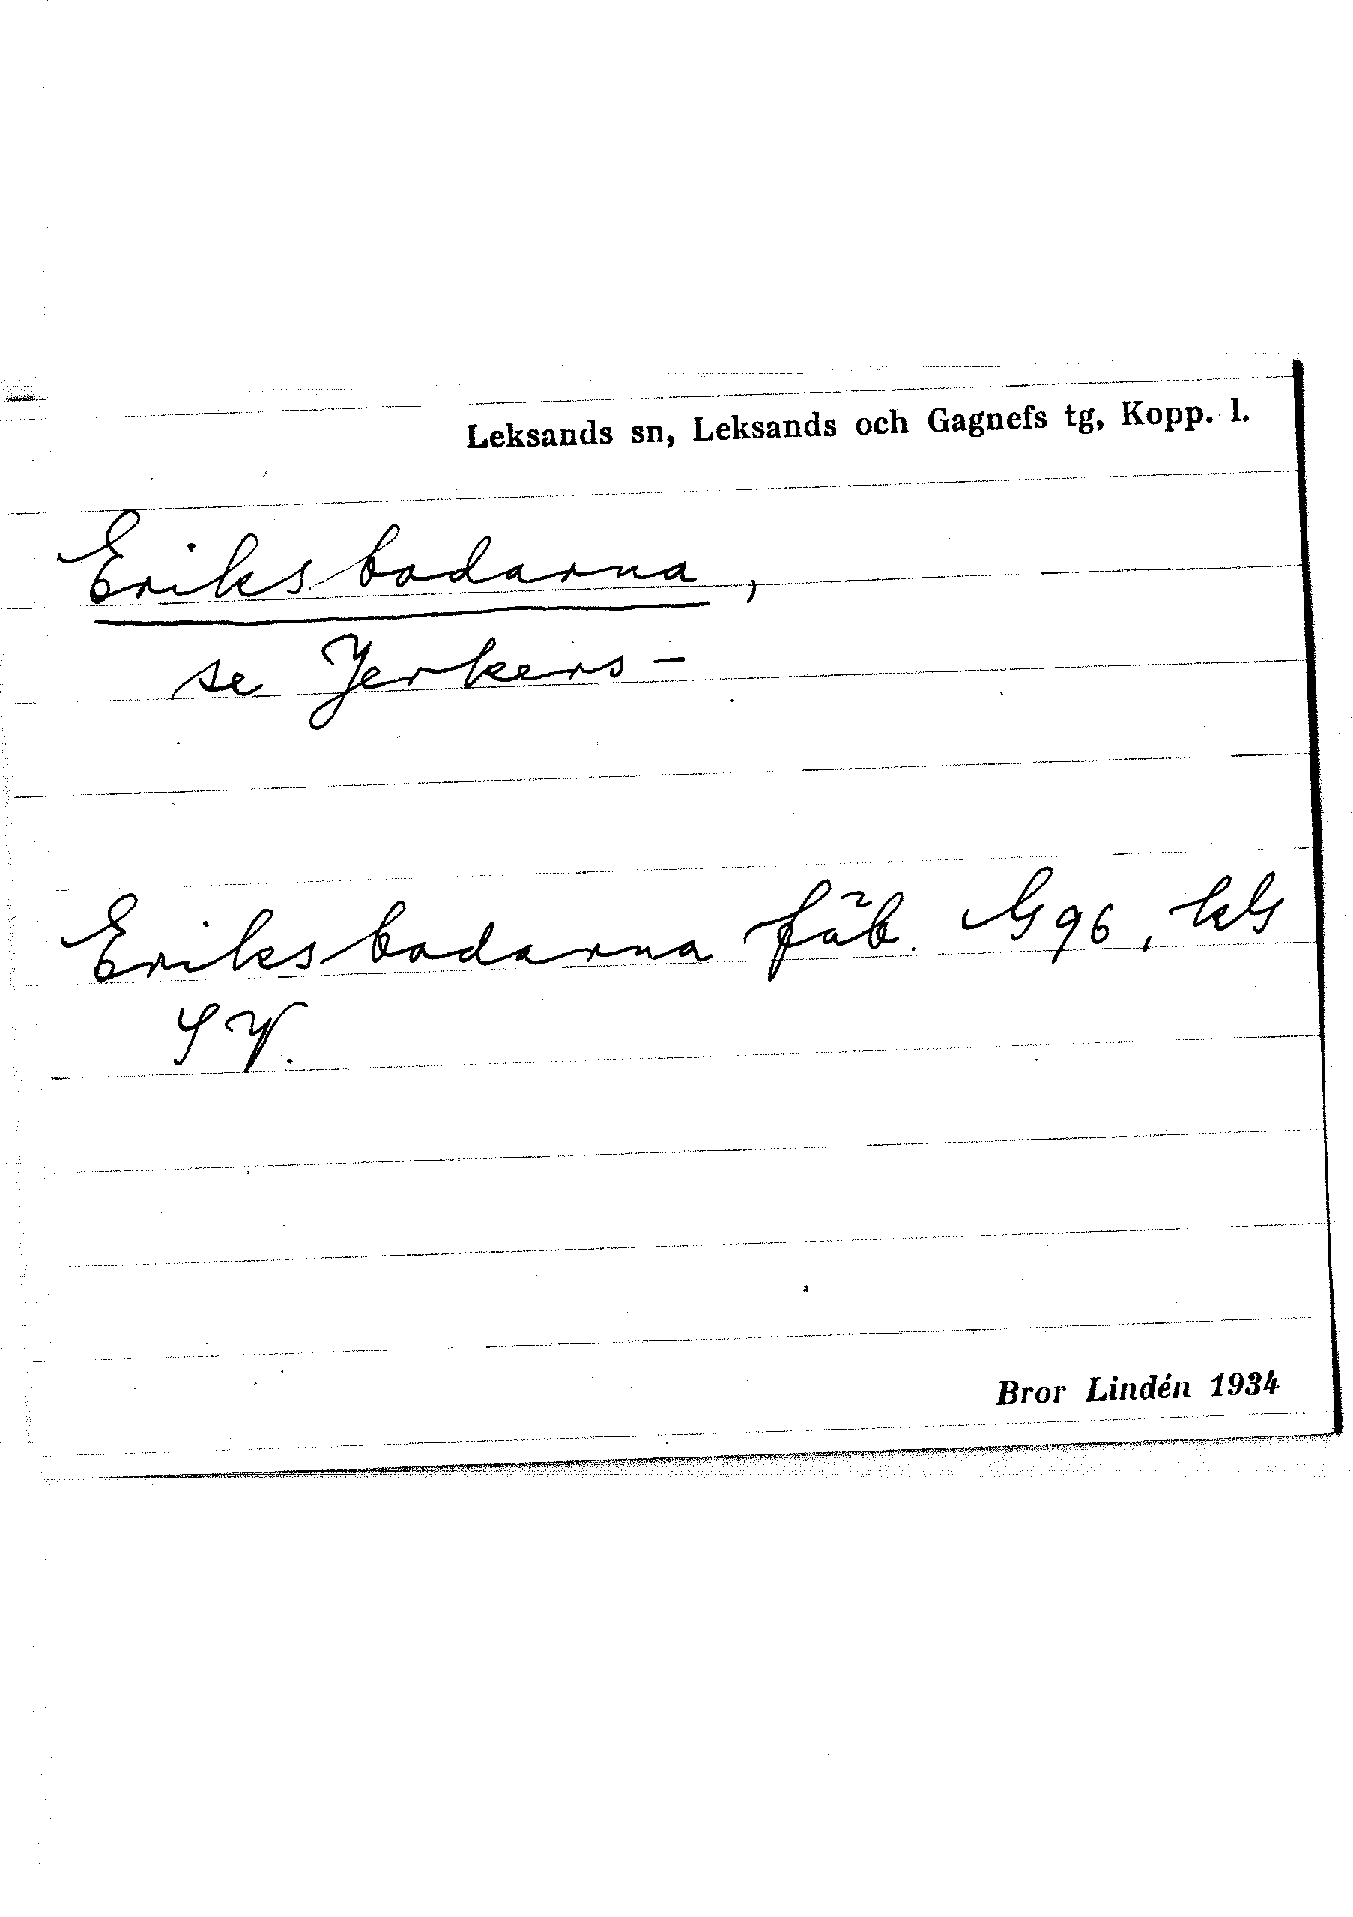 Leksands sn, Leksands och Gagnefs tg, Kopp. l.
Eriksbodarna,
se Jerkers-
Eriksbodarna fäb. G 96, kG
SV.
Bror Lindén 1934